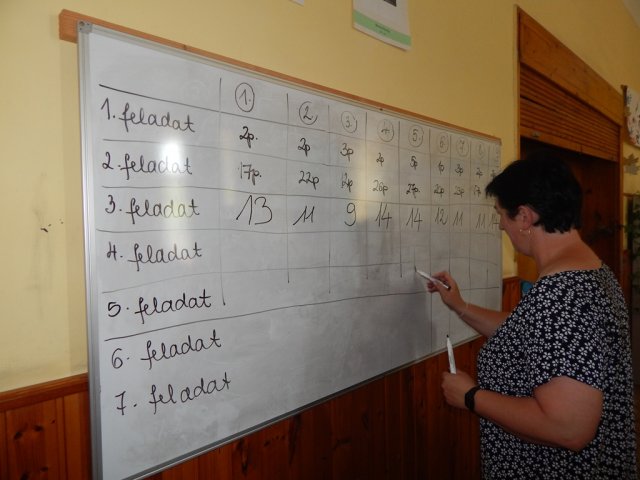 1. 2. 3. 4. 5. 6. 7. 8.
1. feladat 2p. 2p 3p 2p 5p 1p 3p
2. feladat 17p. 22p 12p 26p 27p
3. feladat 13 11 9 14 14 12 11 11
4. feladat
5. feladat
6. feladat
7. feladat